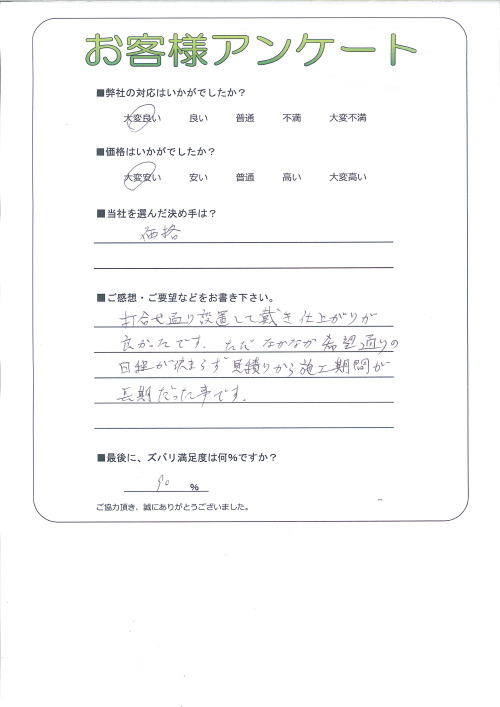 お客様アンケート
■弊社の対応はいかがでしたか？
大変良い 良い 普通 不満 大変不満
■価格はいかがでしたか？
大変安い 安い 普通 高い 大変高い
■当社を選んだ決め手は？
価格
■ご感想・ご要望などをお書き下さい。
打合せ通り設置して戴き仕上がりが
良かったです。ただなかなか希望通りの
日程が決まらず見積りから施工期間が
長期だった事です。
■最後に、ズバリ満足度は何％ですか？
90 %
ご協力頂き、誠にありがとうございました。